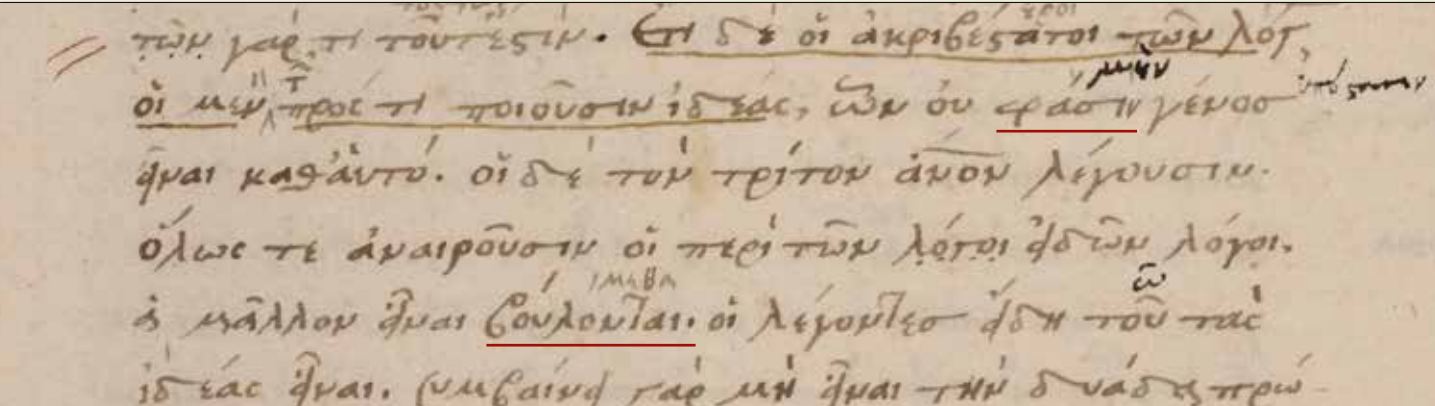 τῶν γάρ τι τούτέστιν. Ἔτι δὲ οἱ ἀκριβέστατοι τῶν λόγ
οἱ μὲν πρός τι ποιοῦσιν ἰδέας, ὧν οὐ φάσιν γένος
εἶναι καθαὑτό. οἱ δὲ τὸν τρίτον ἄν̅ο̅ν λέγουσιν.
ὅλως τε ἀναιροῦσιν οἱ περὶ τῶν λόγοι εἰδῶν λόγοι.
ἃ μᾶλλον εἶναι βούλονται. οἱ λέγοντες εἴδη τοῦ τὰς
ἰδέας εἶναι. συμβαίνει γὰρ μὴ εἶναι τὴν δυάδα πρώ